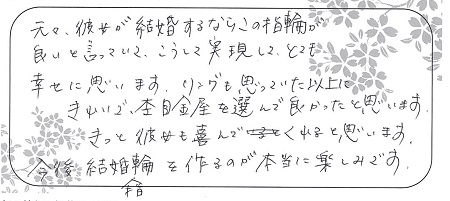 元々、彼女が結婚するならこの指輪が
良いと言っていて、こうして実現して、とても
幸せに思います。リングも思っていた以上に
きれいで、杢目金屋を選んで良かったと思います。
きっと彼女も喜んでくれると思います。
今後結婚輪を作るのが本当に楽しみです。
指